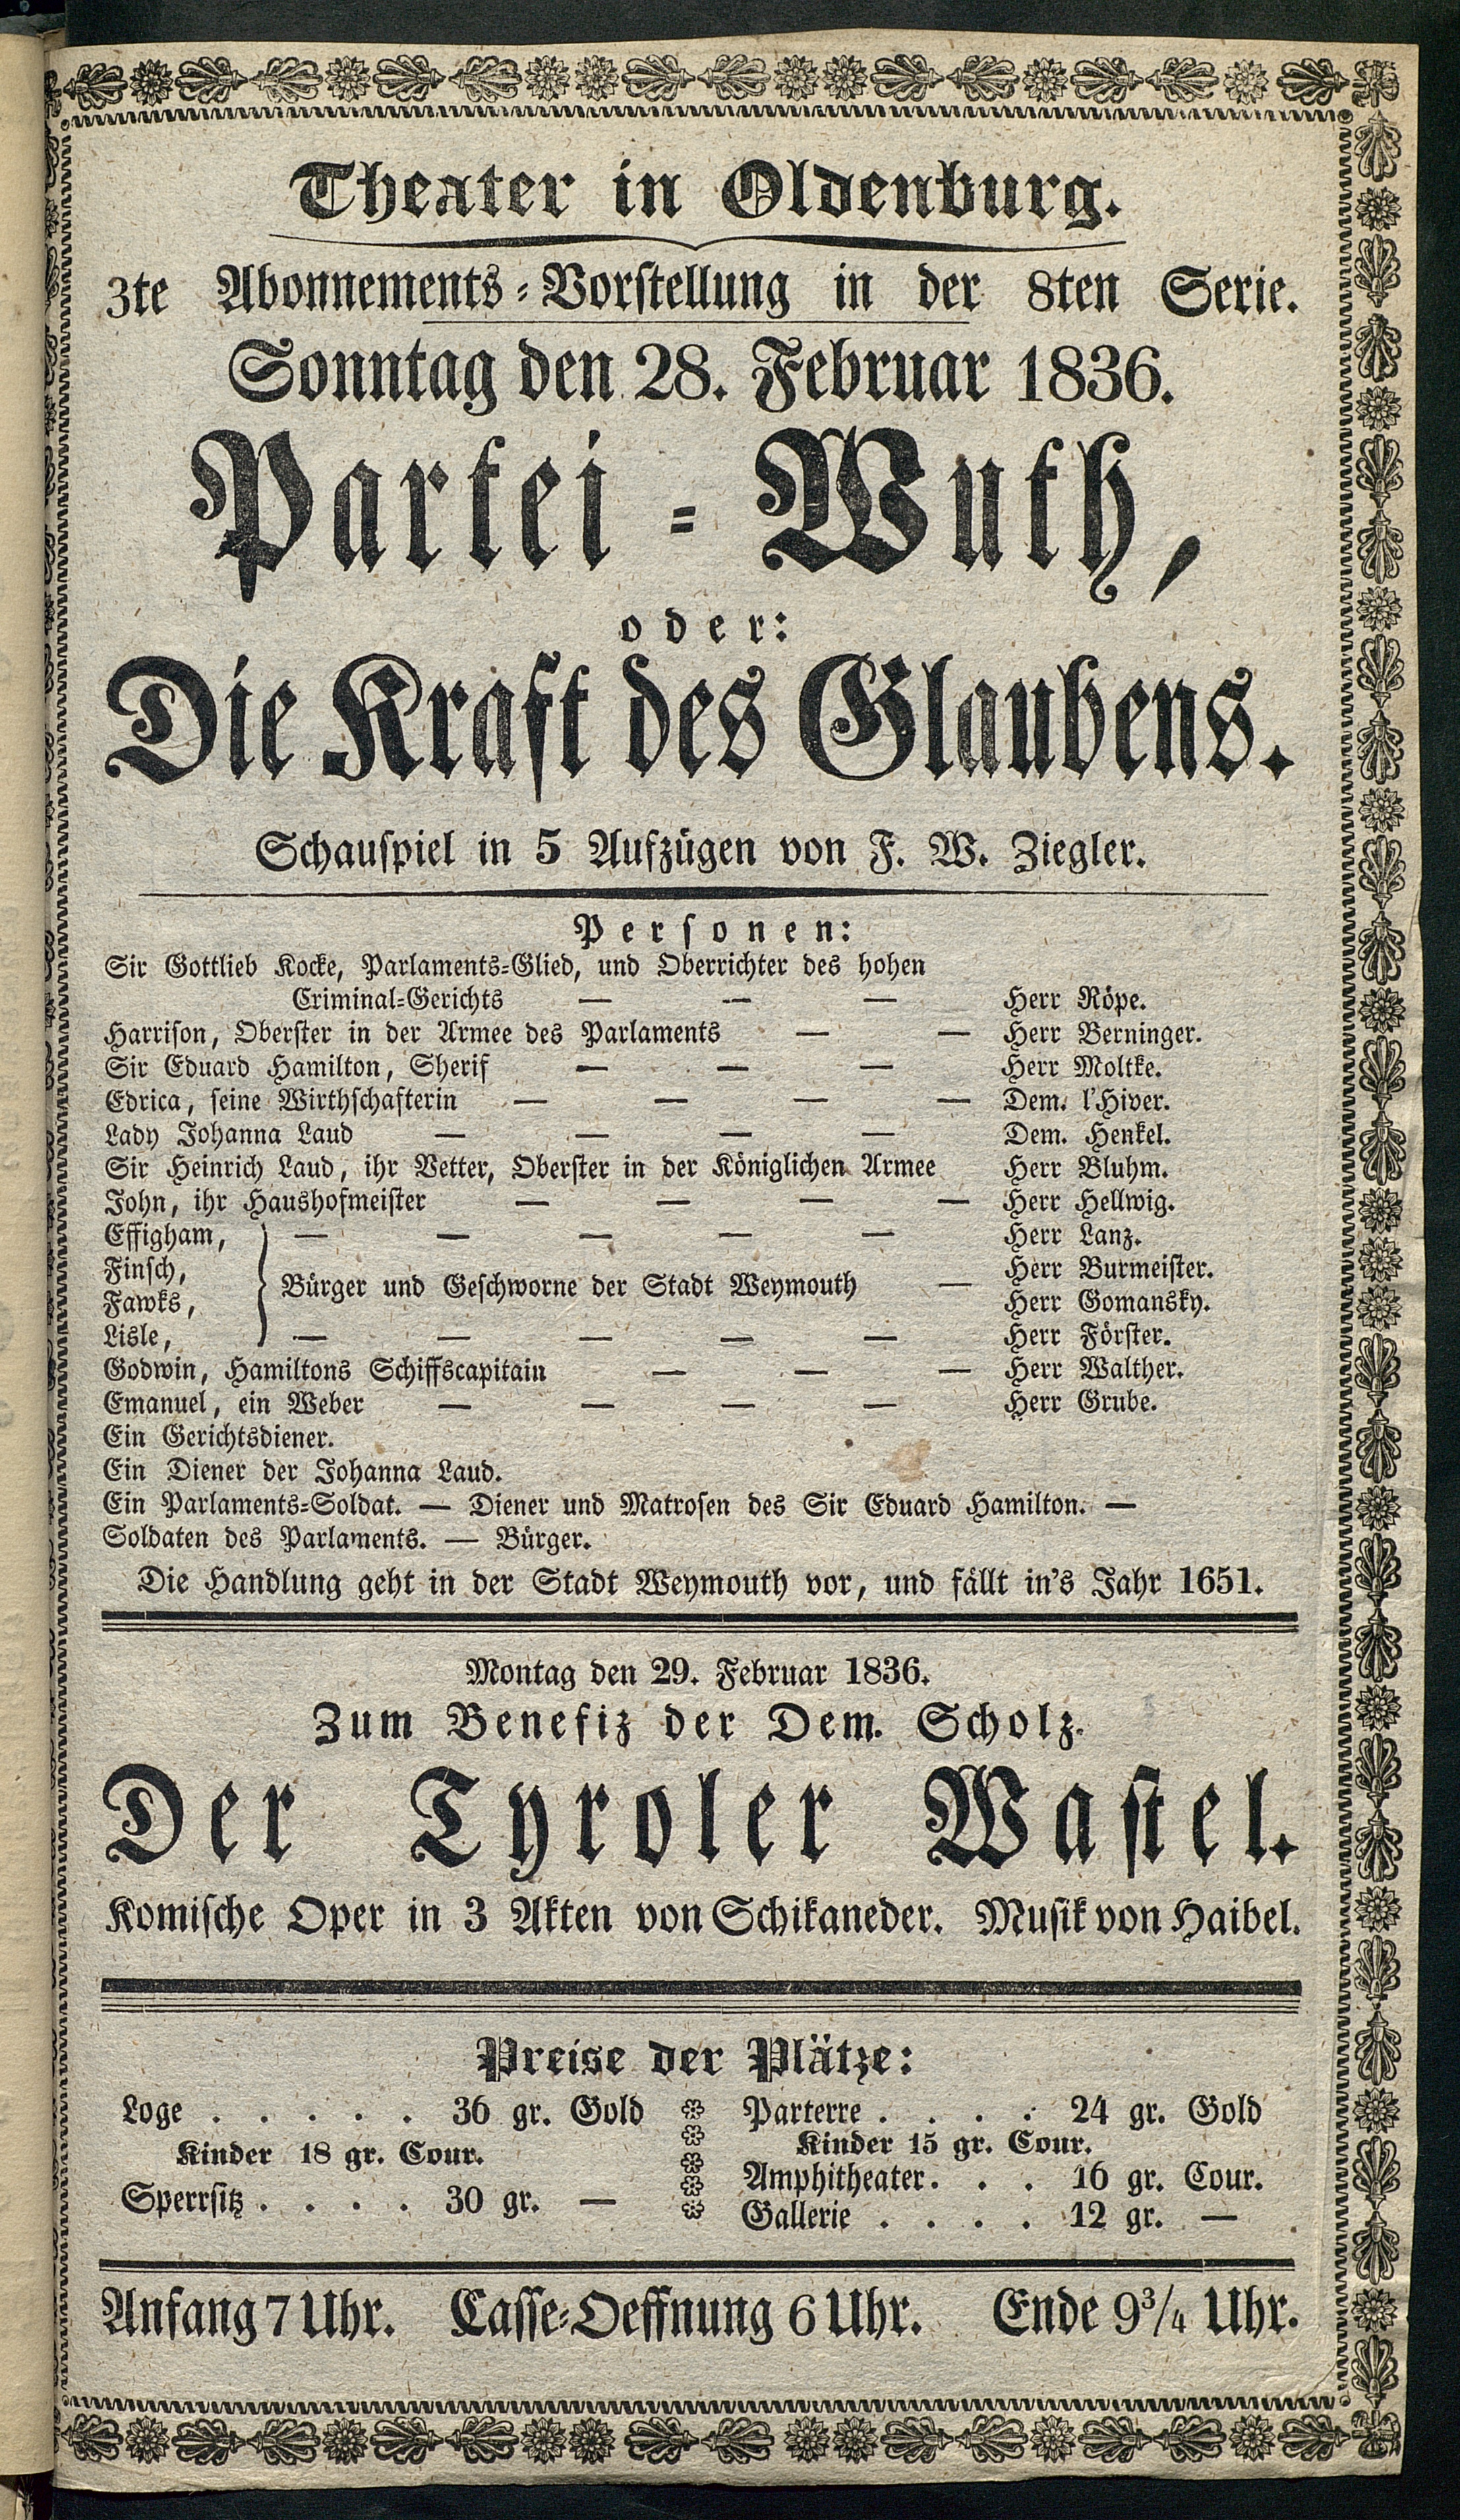 Theater in Oldenburg.
3te Abonnements-Vorstellung in der 8ten Serie.
Sonntag den 28. Februar 1836.
Partei-Wuth,
oder:
Die Kraft des Glaubens.
Schauspiel in 5 Aufzügen von F. W. Ziegler.
Personen:
Sir Gottlieb Kocke, Parlaments-Glied, und Oberrichter des hohen
Criminal-Gerichts — — — Herr Röpe.
Harrison, Oberster in der Armee des Parlaments — — Herr Berninger.
Sir Eduard Hamilton, Sherif — — — Herr Moltke.
Edrica, seine Wirthschafterin — — — — Dem. l'Hiver.
Lady Johanna Laud — — — — Dem. Henkel.
Sir Heinrich Laud, ihr Vetter, Oberster in der Königlichen Armee Herr Bluhm.
John, ihr Haushofmeister — — — — Herr Hellwig.
Effigham, — — — — — Herr Lanz.
Finsch, Herr Burmeister.
Bürger und Geschworne der Stadt Weymouth —
Fawks, Herr Gomansky.
Lisle, — — — — — Herr Förster.
Godwin, Hamiltons Schiffscapitain — — — Herr Walther.
Emanuel, ein Weber — — — — Herr Grube.
Ein Gerichtsdiener.
Ein Diener der Johanna Laud.
Ein Parlaments-Soldat. — Diener und Matrosen des Sir Eduard Hamilton. —
Soldaten des Parlaments. — Bürger.
Die Handlung geht in der Stadt Weymouth vor, und fällt in's Jahr 1651.
Montag den 29. Februar 1836.
Zum Benefiz der Dem. Scholz.
Der Tyroler Wastel.
Komische Oper in 3 Akten von Schikaneder. Musik von Haibel.
Preise der Plätze:
Loge . . . . . 36 gr. Gold
Kinder 18 gr. Cour.
Sperrsitz . . . . 30 gr. —
Parterre . . . . 24 gr. Gold
Kinder 15 gr. Cour.
Amphitheater . . . 16 gr. Cour.
Gallerie . . . . 12 gr. —
Anfang 7 Uhr. Casse-Oeffnung 6 Uhr. Ende 9¾ Uhr.